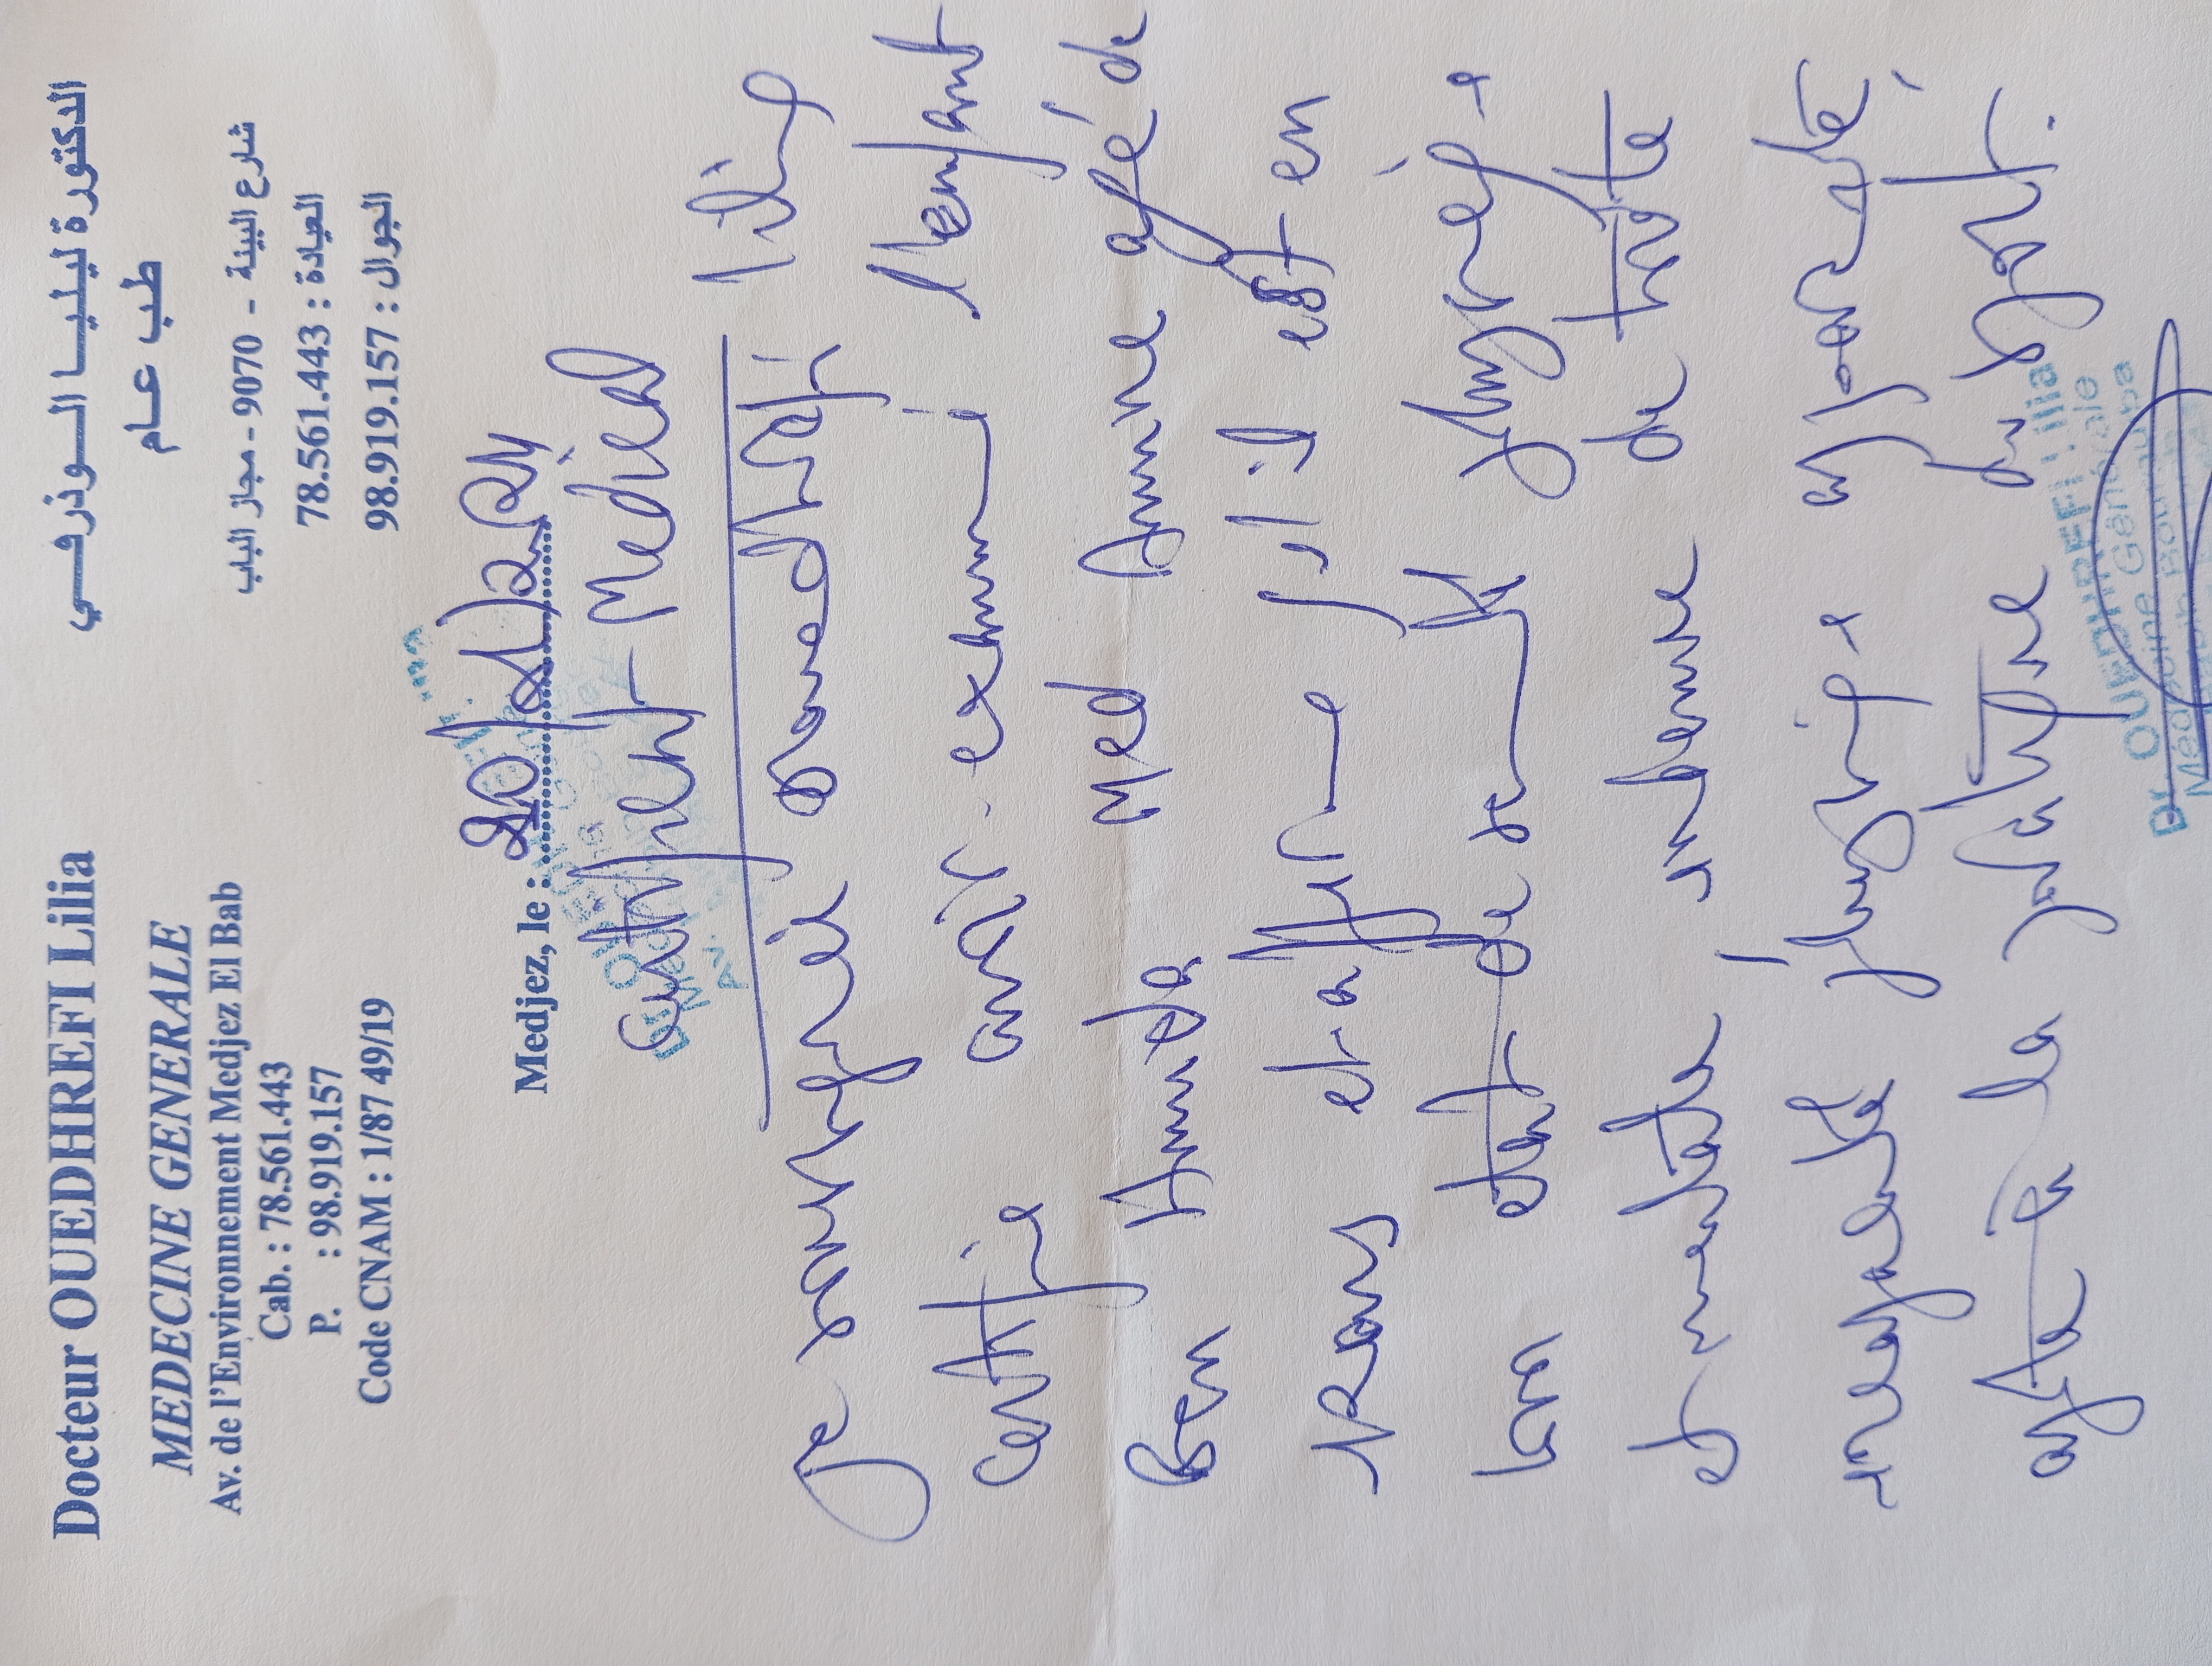 Docteur OUEDHREFI Lilia
MEDECINE GENERALE
Av. de l'Environnement Medjez El Bab
Cab. : 78.561.443
P. : 98.919.157
Code CNAM : 1/87 49/19
الدكتورة ليليا الوذرفي
طب عام
شارع البيئة - 9070 - مجاز الباب
العيادة : 78.561.443
الجوال : 98.919.157
Medjez, le :
Certificat Médical
Je soussignée Ouedhrefi Lilia
Certifie avoir examiné l'enfant
Ben Amida Med Amine agé de
ans et a est en
bon état de santé physique
et mentale indemne de toute
maladie physique
apte à la pratique du sport.
Dr. OUEDHREFI Lilia
Médecine Générale